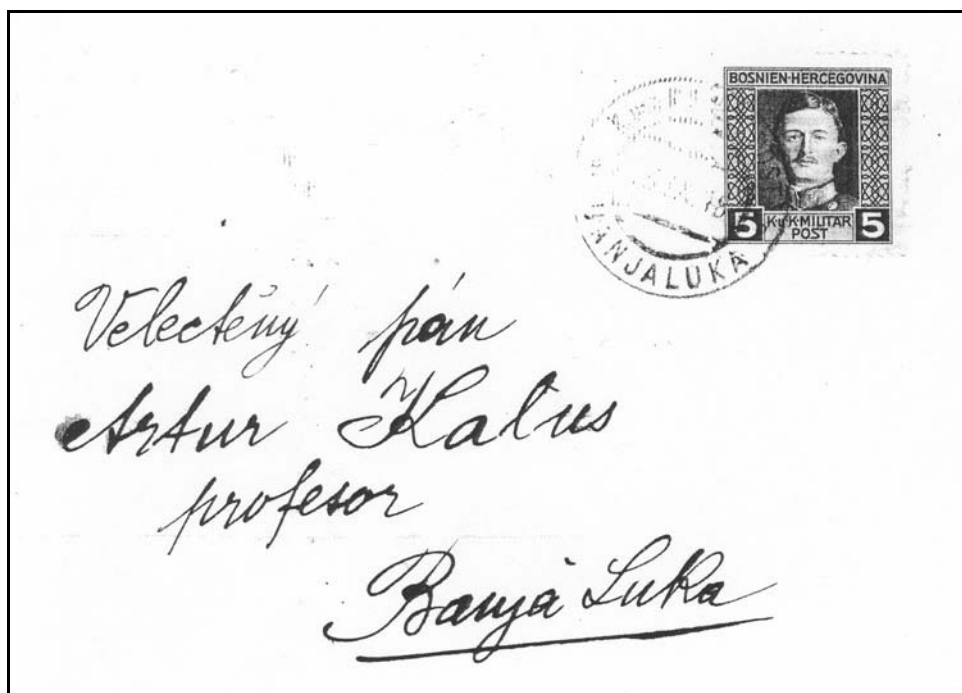 BOSNIEN-HERCEGOVINA
5 K.u.K.MILITÄR 5
POST
BANJALUKA
Velectěný pán
Artur Kalus
profesor
Banjá Luka